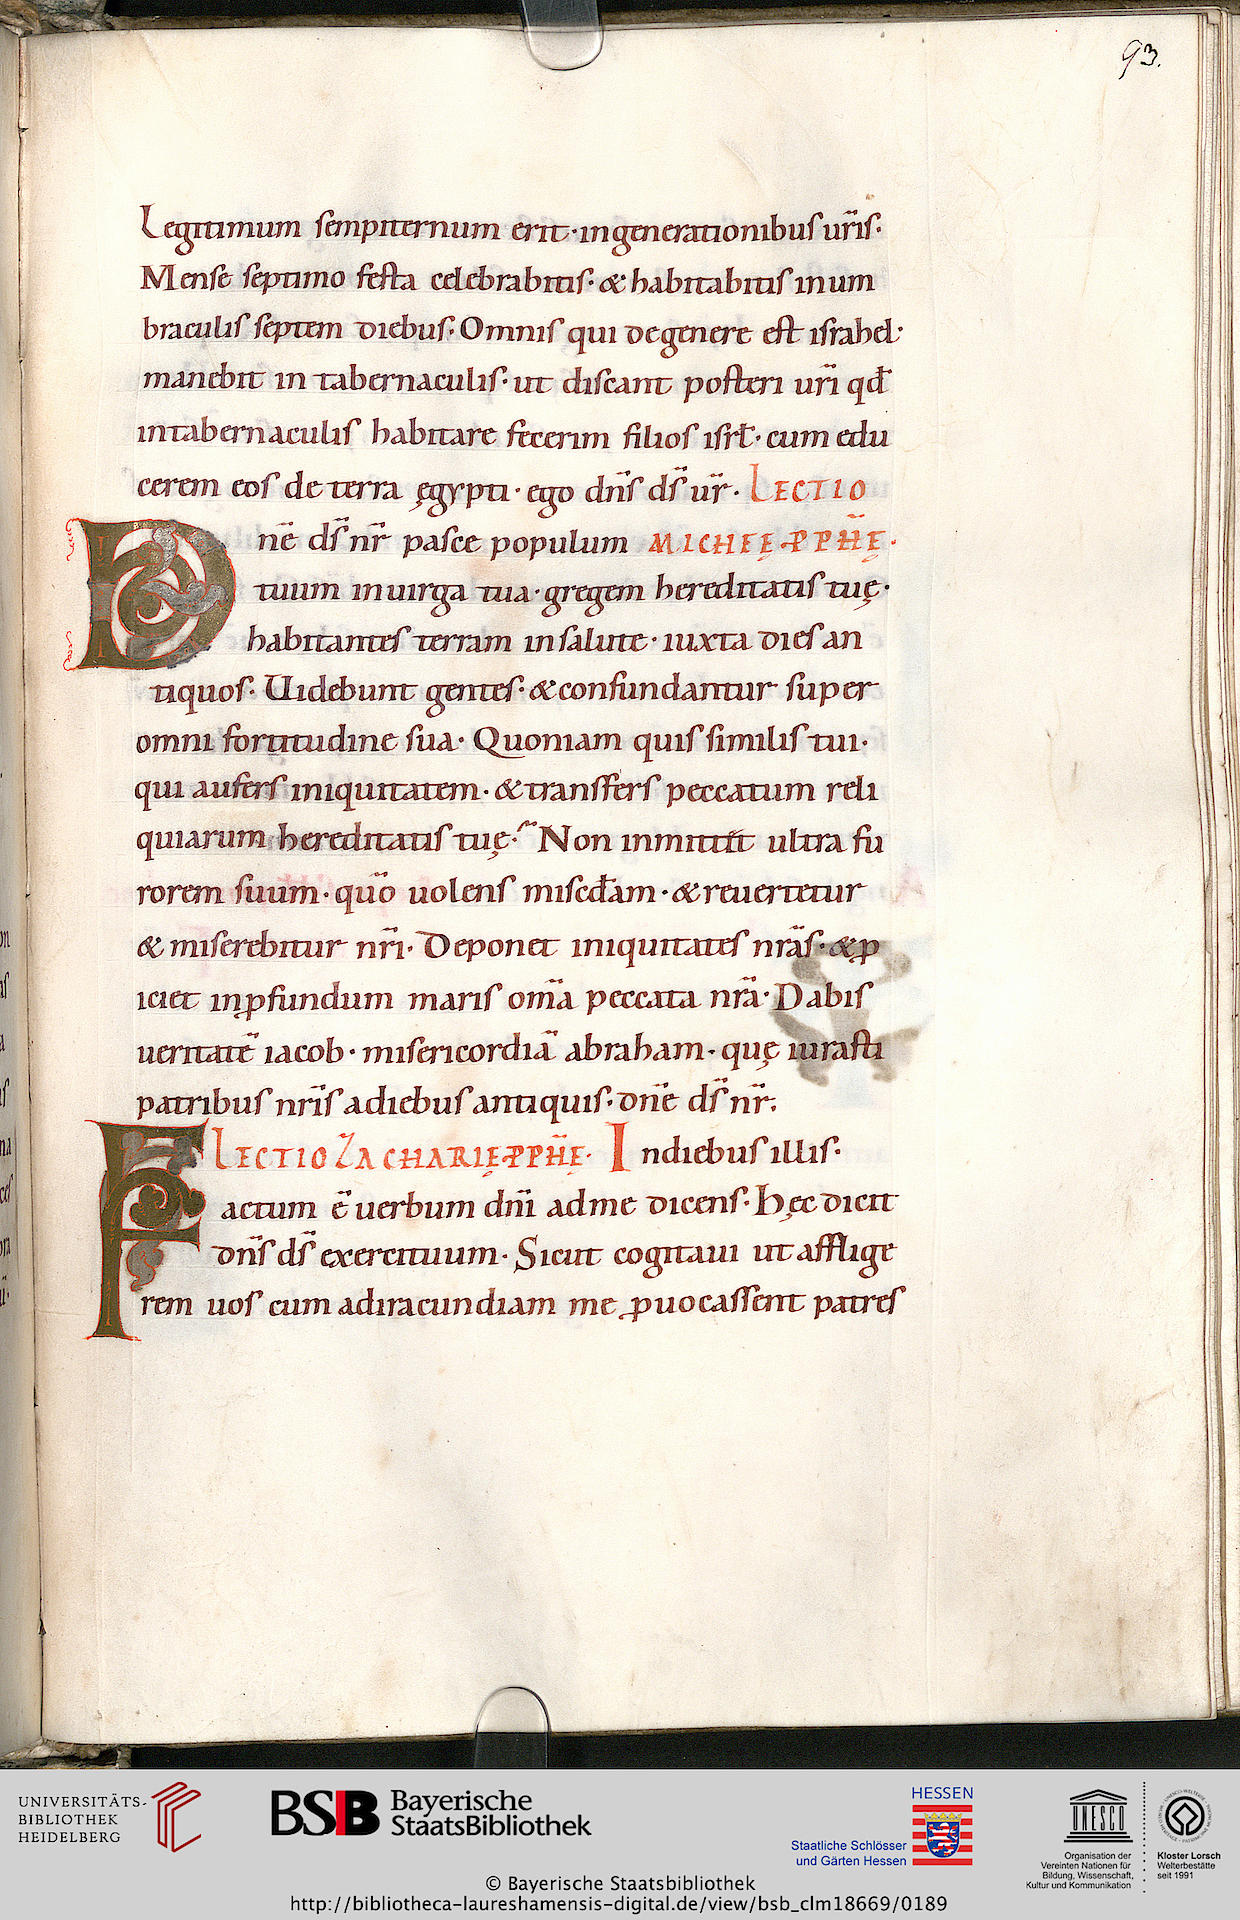 93.
Legitimum sempiternum erit· in generationibus ur̃is·
Mense septimo festa celebrabitis· & habitabitis in um
braculis septem diebus· Omnis qui de genere est israhel·
manebit in tabernaculis· ut discant posteri ur̃i qđ
in tabernaculis habitare fecerim filios isrł· cum edu
cerem eos de terra ęgypti· ego dñs d̃s ur̃· LECTIO
Dñe d̃s nr̃ pasce populum MICHEĘ· PPH̃Ę·
tuum in uirga tua· gregem hereditatis tuę·
habitantes terram in salute· iuxta dies an
tiquos· Uidebunt gentes· & confundantur super
omni fortitudine sua· Quoniam quis similis tui·
qui aufers iniquitatem· & transfers peccatum reli
quiarum hereditatis tuę· Non inmittit ultra fu
rorem suum· quõ uolens miscđam· & reuertetur
& miserebitur nr̃i· Deponet iniquitates nr̃as· & ꝓ
iciet in ꝓfundum maris om̃a peccata nr̃a· Dabis
ueritatẽ iacob· misericordiã abraham· quę iurasti
patribus nr̃is a diebus antiquis· dñe d̃s nr̃.
LECTIO ZACHARIĘ PPH̃Ę· In diebus illis·
Factum ẽ uerbum dñi ad me dicens· Hęc dicit
dñs d̃s exercituum· Sicut cogitaui ut afflige
rem uos cum ad iracundiam me ꝓuocassent patres
UNIVERSITÄTS-
BIBLIOTHEK
HEIDELBERG
BSB Bayerische
StaatsBibliothek
HESSEN
Staatliche Schlösser
und Gärten Hessen
UNESCO
Organisation der
Vereinten Nationen für
Bildung, Wissenschaft,
Kultur und Kommunikation
Kloster Lorsch
Welterbestätte
seit 1991
© Bayerische Staatsbibliothek
http://bibliotheca-laureshamensis-digital.de/view/bsb_clm18669/0189